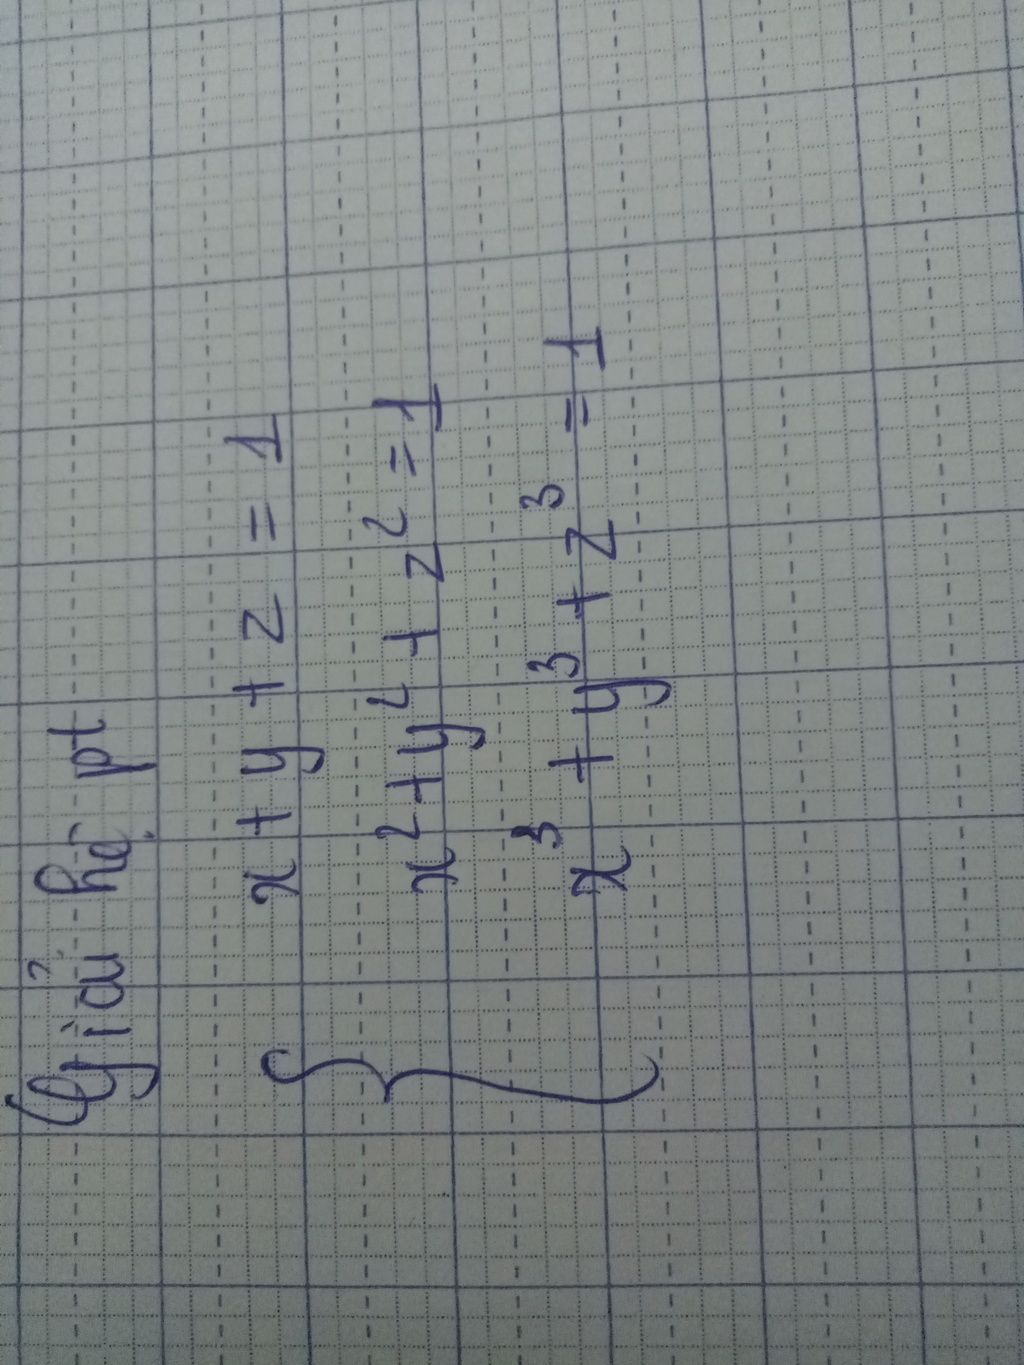 Giải hệ pt
x + y + z = 1
x² + y² + z² = 1
x³ + y³ + z³ = 1